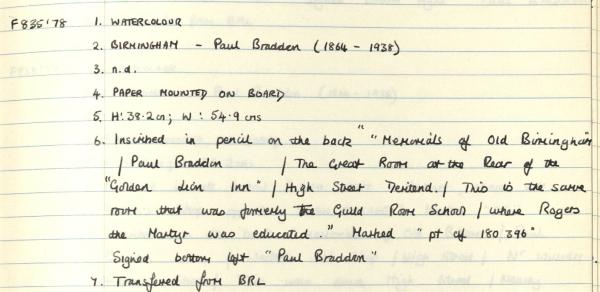 F835'78 1. WATERCOLOUR
2. BIRMINGHAM - Paul Bradden (1864 - 1938)
3. n.d.
4. PAPER MOUNTED ON BOARD
5. H: 38.2cm; W: 54.9 cms
6. Inscribed in pencil on the back " "Memorials of Old Birmingham
/ Paul Braddon / The Great Room at the Rear of the
"Golden Lion Inn" / High Street Deritend. / This is the same
room that was formerly the Guild Room School / where Rogers
the Martyr was educated.." Marked "pt of 180396"
Signed bottom left "Paul Braddon"
7. Transferred from BRL